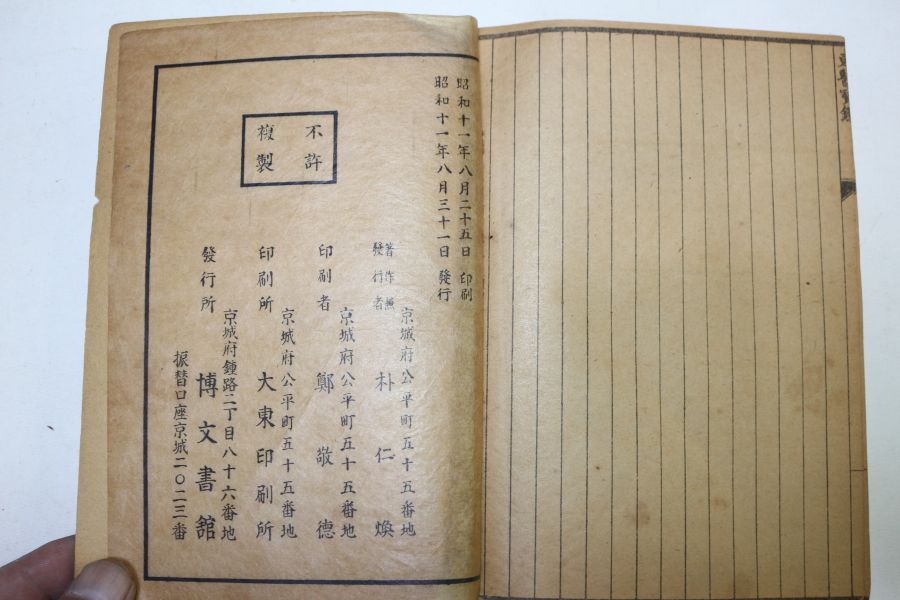 昭和十一年八月二十五日 印刷
昭和十一年八月三十一日 發行
不許
複製
京城府公平町五十五番地
著作兼
發行者
朴仁煥
京城府公平町五十五番地
印刷者 鄭敬德
京城府公平町五十五番地
印刷所 大東印刷所
京城府鍾路二丁目八十六番地
發行所 博文書舘
振替口座京城二〇二三番